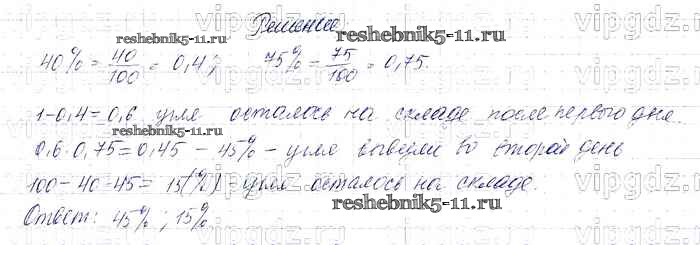 Решение
40% = 40/100 = 0,4; 75% = 75/100 = 0,75.
1-0,4=0,6 угля осталось на складе после первого дня.
0,6·0,75=0,45 - 45% - угля вывезли во второй день
100-40-45= 15(%) - угля осталось на складе.
Ответ: 45%; 15%
reshebnik5-11.ru
reshebnik5-11.ru
reshebnik5-11.ru
reshebnik5-11.ru
vipgdz.ru